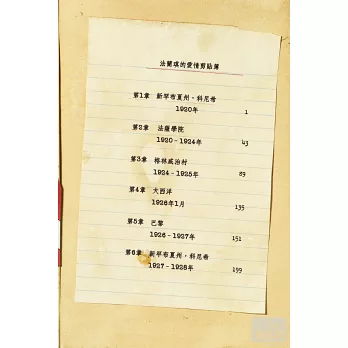 法蘭琪的愛情剪貼簿
第1章 新罕布夏州，科尼希
1920年 1
第2章 法薩學院
1920－1924年 43
第3章 格林威治村
1924－1925年 89
第4章 大西洋
1926年1月 135
第5章 巴黎
1926－1927年 151
第6章 新罕布夏州，科尼希
1927－1928年 199